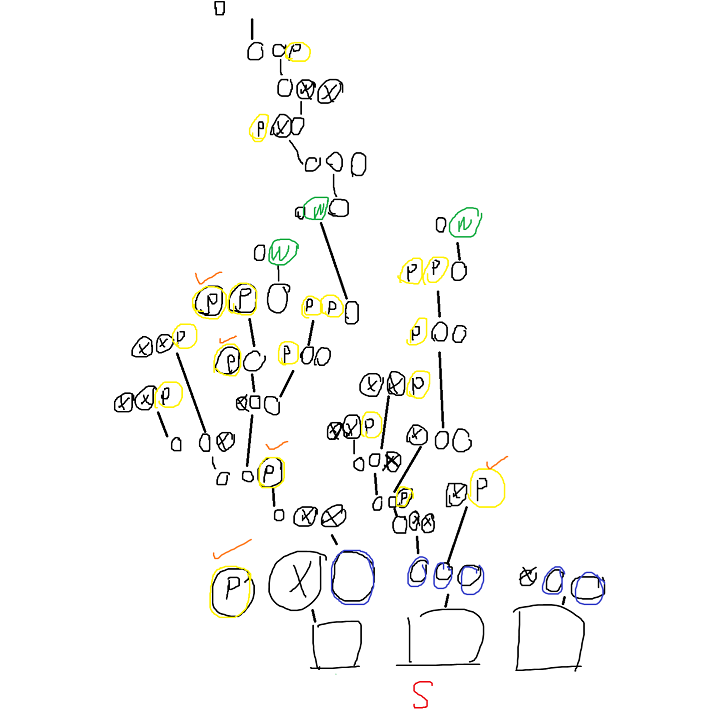 P
X X
P X
W
W
W
P P
P P
P P
P
X X P
P
P
X X P
X X P
X
X X P
X
X
X
P
X P
P
X X
X X
P X
X
S